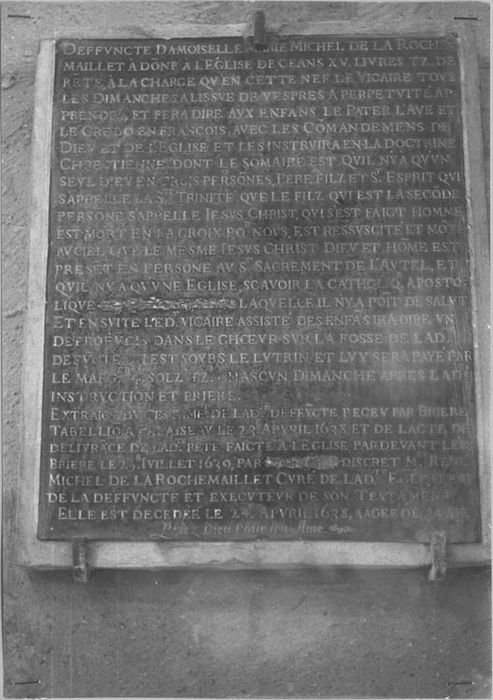 DEFFVNCTE DAMOISELLE MICHEL DE LA ROCHE
MAILLET A DONÉ A L'EGLISE DE CEANS XV. LIVRES TZ. DE
RĒTE, A LA CHARGE QV'EN CETTE NEF LE VICAIRE TOVS
LES DIMANCHES A LISSVE DE VESPRES A PERPETVITÉ AP
PRENDRA, ET FERA DIRE AVX ENFANS, LE PATER L'AVE ET
LE CREDO EN FRANÇOIS, AVEC LES COMANDEMENS DE
DIEV ET DE L'EGLISE ET LES INSTRVIRA EN LA DOCTRINE
CHRESTIENNE, DONT LE SOMAIRE EST QV'IL NY A QV'VN
SEVL DIEV EN TROIS PERSÕNES, PERE FILZ ET St. ESPRIT QVI
S'APPELLE LA Ste TRINITÉ QVE LE FILZ QVI EST LA SECÕDE
PERSONE S'APPELLE IESVS CHRIST, QVI S'EST FAICT HOMME
EST MORT EN LA CROIX PO. NOVS, EST RESSVSCITÉ ET MOTÉ
AV CIEL, QVE LE MESME IESVS CHRIST DIEV ET HÕME EST
PRESĒT EN PERSONE AV St SACREMENT DE L'AVTEL, ET
QV'IL NY A QV'VNE EGLISE, SCAVOIR LA CATHOLIQ. APOSTO
LIQVE LAQVELLE IL NY A POIT DE SALVT
ET EN SVITE L'ED. VICAIRE ASSISTÉ DES ENFĀS IRA DIRE VN
DE PROFVDIS DANS LE CHŒVR SVR LA FOSSE DE LAD.
DEFVCTE EST SOVBS LE LVTRIN ET LVY SERA PAYÉ PAR
LE MARG. 4. SOLZ TZ. CHASCVN DIMANCHE APRES LAD.
INSTRVCTION ET PRIERE.
EXTRAICT DV TESTAME. DE LAD. DEFFVCTE RECEV PAR BRIERE
TABELLIO A FALAISE LE 23. APVRIL 1638 ET DE L'ACTE DE
DELIVRĀCE DE LAD. RĒTE FAICTE A L'EGLISE PAR DEVANT LED.
BRIERE LE 25. IVILLET 1639, PAR DISCRET Mre RENÉ
MICHEL DE LA ROCHEMAILLET CVRÉ DE LAD. EGLISE
DE LA DEFFVNCTE ET EXECVTEVR DE SON TESTAMENT
ELLE EST DECEDÉE LE 24. APVRIL 1638, AAGÉE DE 24 AN.
Priez Dieu Pour son Ame